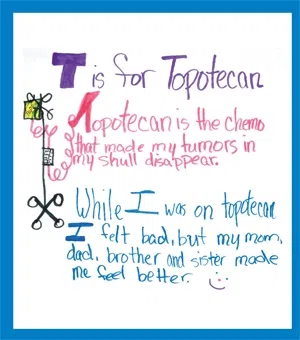 T is for Topotecan
Topotecan is the chemo
that made my tumors in
my skull disappear.
While I was on topotecan
I felt bad, but my mom,
dad, brother and sister made
me feel better.